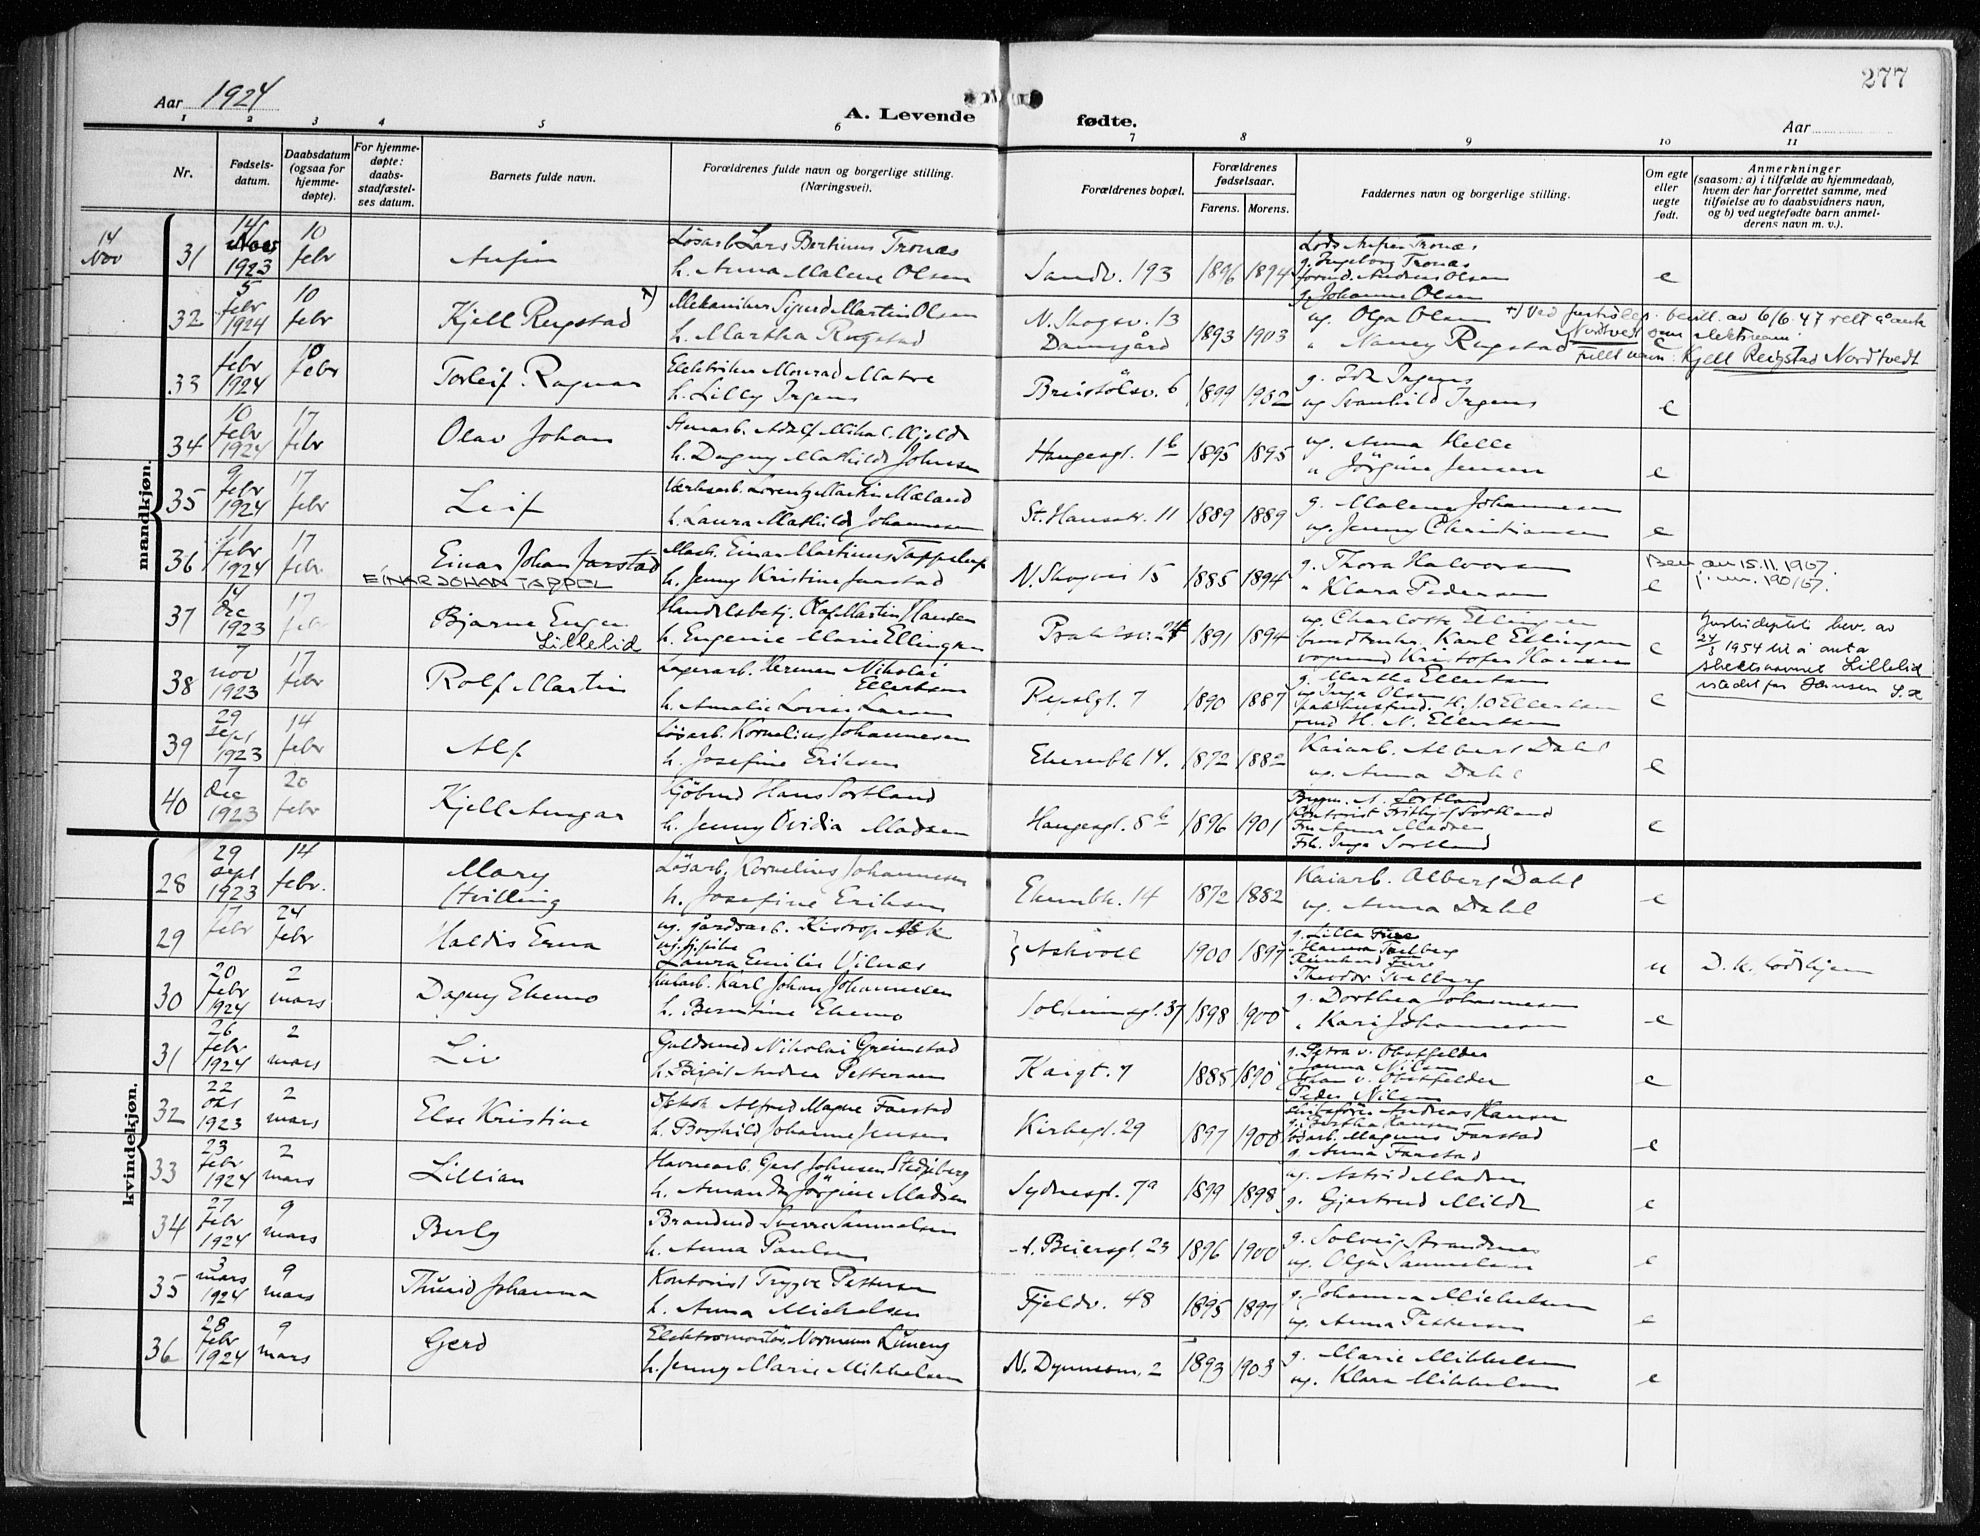 277
Aar 1924
A. Levende fødte.
Aar
1 2 3 4 5 6 7 8 9 10 11
Nr.
Fødsels-
datum.
Daabsdatum
(ogsaa for
hjemme-
døpte).
For hjemme-
døpte:
daabs-
stadfæstel-
ses datum.
Barnets fulde navn.
Forældrenes fulde navn og borgerlige stilling.
(Næringsvei).
Forældrenes bopæl.
Forældrenes
fødselsaar.
Farens. Morens.
Faddernes navn og borgerlige stilling.
Om egte
eller
uegte
født.
Anmerkninger
(saasom: a) i tilfælde av hjemmedaab,
hvem der har forrettet samme, med
tilføielse av to daabsvidners navn,
og b) ved uegtefødte barn anmel-
derens navn m. v.).
mandkjøn.
14
Nov
31 14 Nov 1923 10 febr
Løsarb. Lars Bertinus Tronæs
h. Anna Malene Olsen
Sandv. 193 1896 1894
g. Ingeborg Tronæs
g. Johanne Olsen
e
32 5 febr 1924 10 febr Kjell Rugstad +)
Mekaniker Sigurd Martin Olsen
h. Martha Rugstad
N. Skogsv. 13
Damsgård
1893 1903
ug. Olga Olsen
" Nancy Rugstad
e
+) Ved bevill. av 6/6-47 rett å anta
Nordtvedt som slektsnavn
Fullt navn: Kjell Rugstad Nordtvedt
33 1 febr 1924 10 febr Torleif Ragnar
Elektriker Monrad Matre
h. Lilly Irgens
Breistölsv. 6 1899 1902
ug Svanhild Irgens
e
34 10 febr 1924 17 febr Olav Johan
h. Dagny Mathilde Johnsen
Haugesgt. 1b 1895 1895
ug. Anna Helle
" Jörgine Jensen
e
35 9 febr 1924 17 febr Leif
Verksarb. Lorentz Martin Mæland
h. Laura Mathilde Johannesen
St. Hansstr. 11 1889 1889
g. Malene Johannesen
ug. Jenny Christiansen
e
36 11 febr 1924 17 febr Einar Johan Jarstad
EINAR JOHAN TAPPEL
h. Jenny Kristine Jarstad
N. Skogvei 15 1885 1894
g. Thora Halvorsen
" Klara Pedersen
e
Bev. av 15.11.1967.
j. nr. 190/67.
37 14 Dec 1923 17 febr Bjarne Eugen
Lillelid
Handelsbetj. Olaf Martin Hansen
h. Eugenie Marie Ellingsen
Prahlsv. 24 1891 1894
ug. Charlotte Ellingsen
Karl Ellingsen
Kristofer Hansen
e
Justisdeptets bev. av
24/3 1954 til å anta
slektsnavnet Lillelid
istedet for Hansen
38 7 nov 1923 17 febr Rolf Martin
Lagerarb. Herman Nikolai
Ellertsen
h. Amalie Lovise Larsen
Repslgt. 7 1890 1887
g. Martha Ellertsen
ug Inga Olsen
H. J. O Ellertsen
H. N. Ellertsen
e
39 29 sept 1923 14 febr Alf
Løsarb. Kornelius Johannesen
h. Josefine Eriksen
14. 1872 1882
Kaiarb. Albert Dahl
ug. Anna Dahl
e
40 7 dec 1923 20 febr Kjell Ansgar
Hans Sortland
h. Jenny Ovidia Madsen
Haugesgt. 8b 1896 1901
A. Sortland
Kontorist Fritjof Sortland
Fru Anna Madsen
Frk. Inga Sortland
e
kvindekjøn.
28 29 sept 1923 14 febr. Mary
tvilling
Løsarb. Kornelius Johannesen
h. Josefine Eriksen
14 1872 1882
Kaiarb. Albert Dahl
ug. Anna Dahl
e
29 17 febr 24 febr Haldis Erna
ug. gårdsarb. Ask
Laura Emilie Vilnæs
Askvoll 1900 1897
g. Lilla Fure
Reinhard Fure
Theodor
u
D. k.
30 20 febr 1924 2 mars Dagny Ekemo
Karl Johan Johannesen
h. Berntine Ekemo
Solheimsgt. 37 1898 1900
g. Dorthea Johannesen
" Kari Johannesen
e
31 26 febr 1924 2 mars Liv
Guldsmed Nikolai Grimstad
h. Birgit Andrea Pettersen
Kaigt. 7 1885 1890
g. Petra v. Obstfelder
Johan v. Obstfelder
Peder Nilsen
e
32 22 okt 1923 2 mars Else Kristine
Alfred Magne Farstad
h. Borghild Johanne Jensen
Kirkegt. 29 1897 1900
Andreas Hansen
Magnus Farstad
g. Anna Farstad
e
33 23 febr 1924 2 mars Lillian
Havnearb. Gert Johnsen Stedjeberg
h. Amanda Jörgine Madsen
Sydnesgt. 7a 1899 1898
ug. Astrid Madsen
g. Gjertrud Milde
e
34 27 febr 1924 9 mars Berly
Brandmd Sverre Samuelsen
h. Anna Paulsen
A. Beiersgt. 23 1896 1900
g. Solveig Strandenes
ug. Olga Samuelsen
e
35 3 mars 1924 9 mars Thurid Johanna
Kontorist Trygve Pettersen
h. Anna Michelsen
Fjeldv. 48 1895 1897
g. Johanna Michelsen
ug. Anna Pettersen
e
36 28 febr 1924 9 mars Gerd
Elektromontör Normann Luneng
h. Jenny Marie Mikkelsen
N. Dynnesm. 2 1893 1903
g. Marie Mikkelsen
ug. Klara Mikkelsen
e